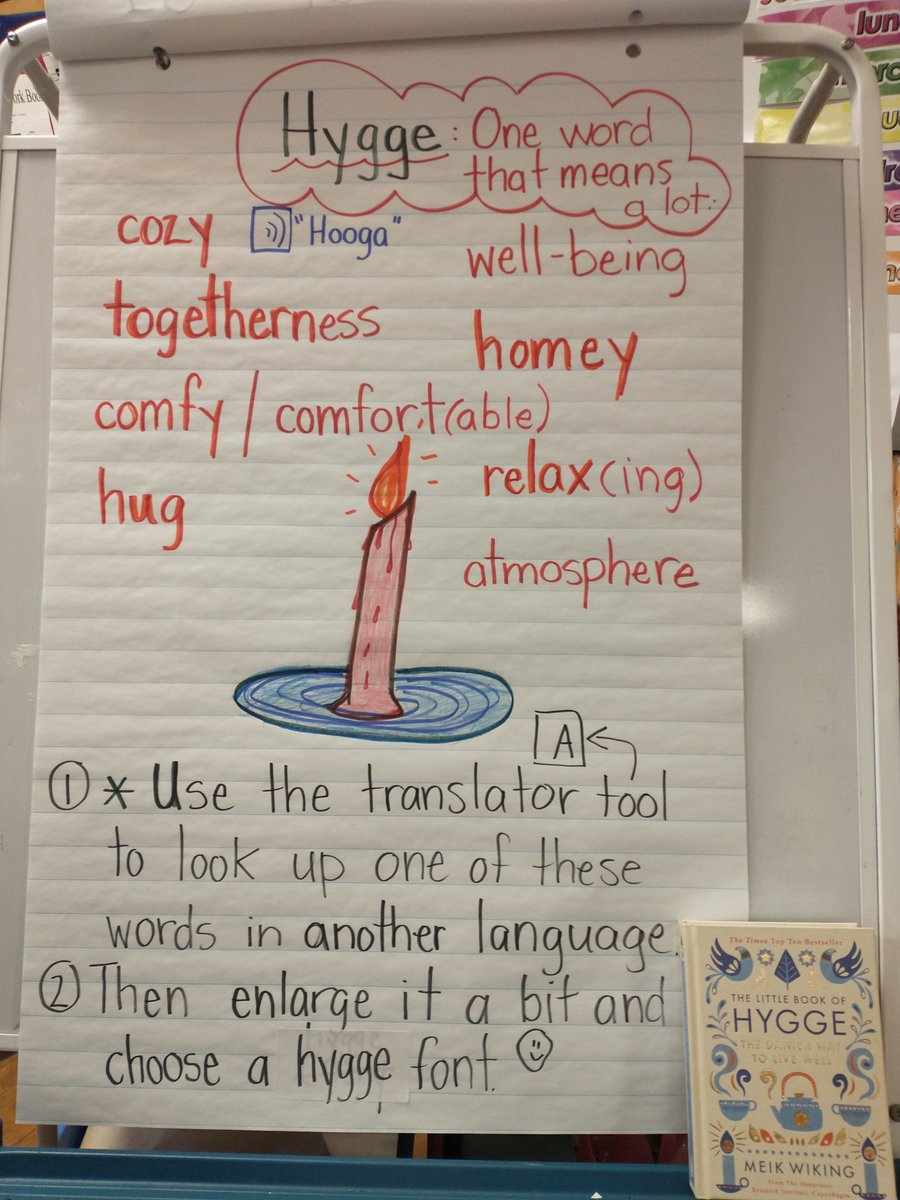 Hygge: One word
that means
a lot:
cozy "Hooga"
well-being
togetherness
homey
comfy / comfort(able)
relax(ing)
hug
atmosphere
A
① * Use the translator tool
to look up one of these
words in another language.
② Then enlarge it a bit and
choose a hygge font.
The Times Top Ten Bestseller
THE LITTLE BOOK OF
HYGGE
THE DANISH WAY
TO LIVE WELL
MEIK WIKING
From The Happiness
Research Institute, Copenhagen
ork Boo